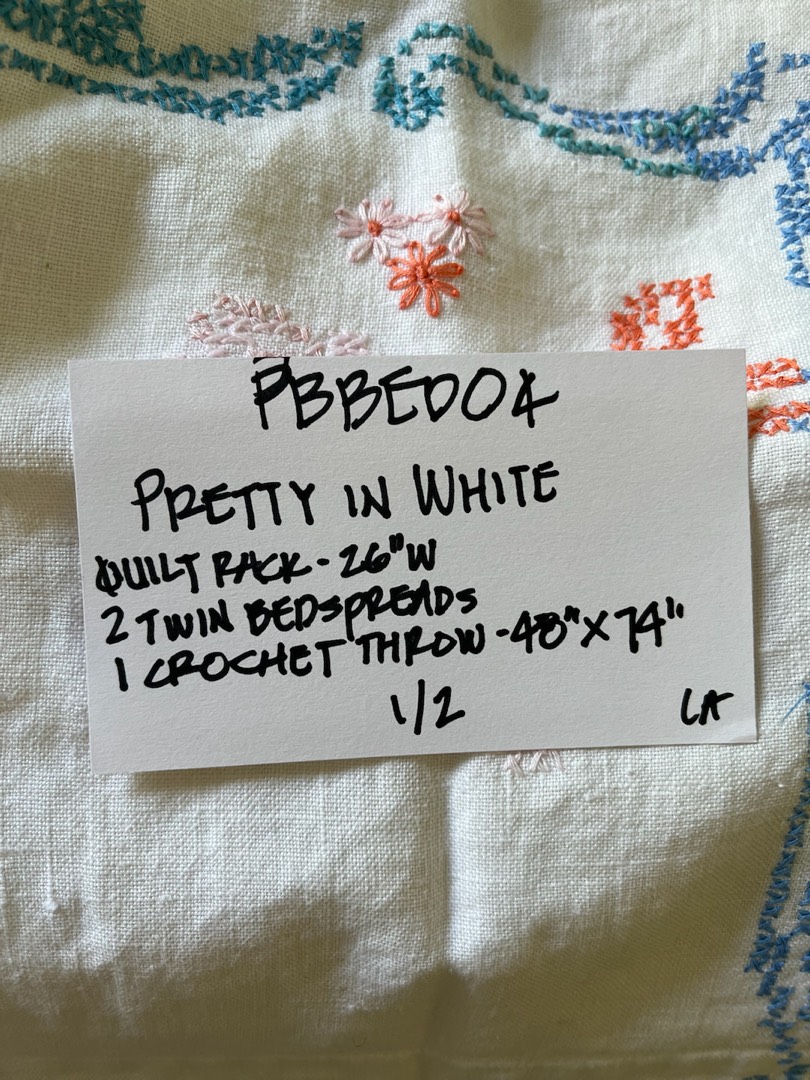 PBBED04
PRETTY IN WHITE
QUILT RACK - 26"W
2 TWIN BEDSPREADS
1 CROCHET THROW - 48" X 74"
1/2
LA